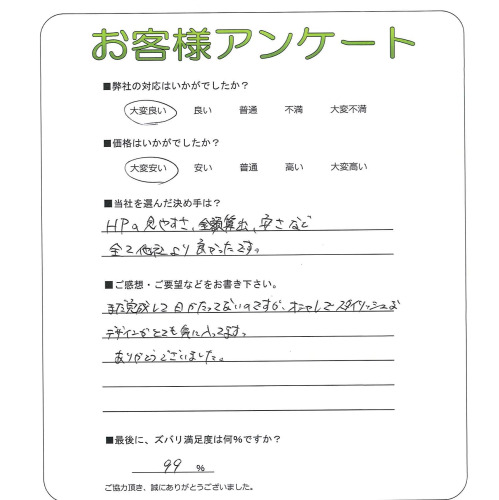 お客様アンケート
■弊社の対応はいかがでしたか？
大変良い 良い 普通 不満 大変不満
■価格はいかがでしたか？
大変安い 安い 普通 高い 大変高い
■当社を選んだ決め手は？
HPの見やすさ、金額算出、安さなど
全て他社より良かったです。
■ご感想・ご要望などをお書き下さい。
まだ完成して日がたってないのですが、オシャレでスタイリッシュな
デザインがとても気に入ってます。
ありがとうございました。
■最後に、ズバリ満足度は何%ですか？
99 %
ご協力頂き、誠にありがとうございました。